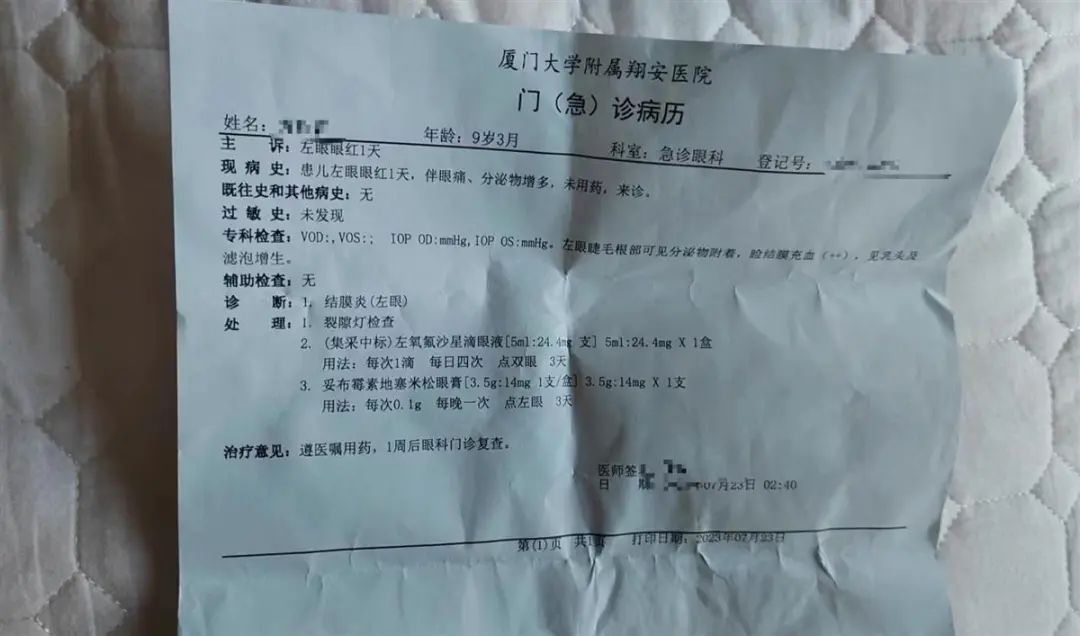 厦门大学附属翔安医院
门（急）诊病历
姓名： 年龄：9岁3月 科室：急诊眼科 登记号：
主 诉：左眼眼红1天
现 病 史：患儿左眼眼红1天，伴眼痛、分泌物增多，未用药，来诊。
既往史和其他病史：无
过 敏 史：未发现
专科检查：VOD:,VOS:; IOP OD:mmHg,IOP OS:mmHg。左眼睫毛根部可见分泌物附着，睑结膜充血（++），见乳头及
滤泡增生。
辅助检查：无
诊 断：1. 结膜炎(左眼)
处 理：1. 裂隙灯检查
2. (集采中标)左氧氟沙星滴眼液[5ml:24.4mg 支] 5ml:24.4mg X 1盒
用法：每次1滴 每日四次 点双眼 3天
3. 妥布霉素地塞米松眼膏[3.5g:14mg 1支/盒] 3.5g:14mg X 1支
用法：每次0.1g 每晚一次 点左眼 3天
治疗意见：遵医嘱用药，1周后眼科门诊复查。
医师签
日 期 07月23日 02:40
第(1)页 共1页 打印日期：2023年07月23日